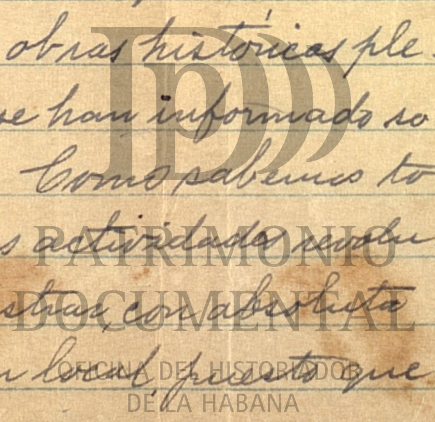 obras históricas ple
se han informado so
Como sabemos to
s actividades revolu
strar, con absoluta
n local, puesto que
PATRIMONIO
DOCUMENTAL
OFICINA DEL HISTORIADOR
DE LA HABANA